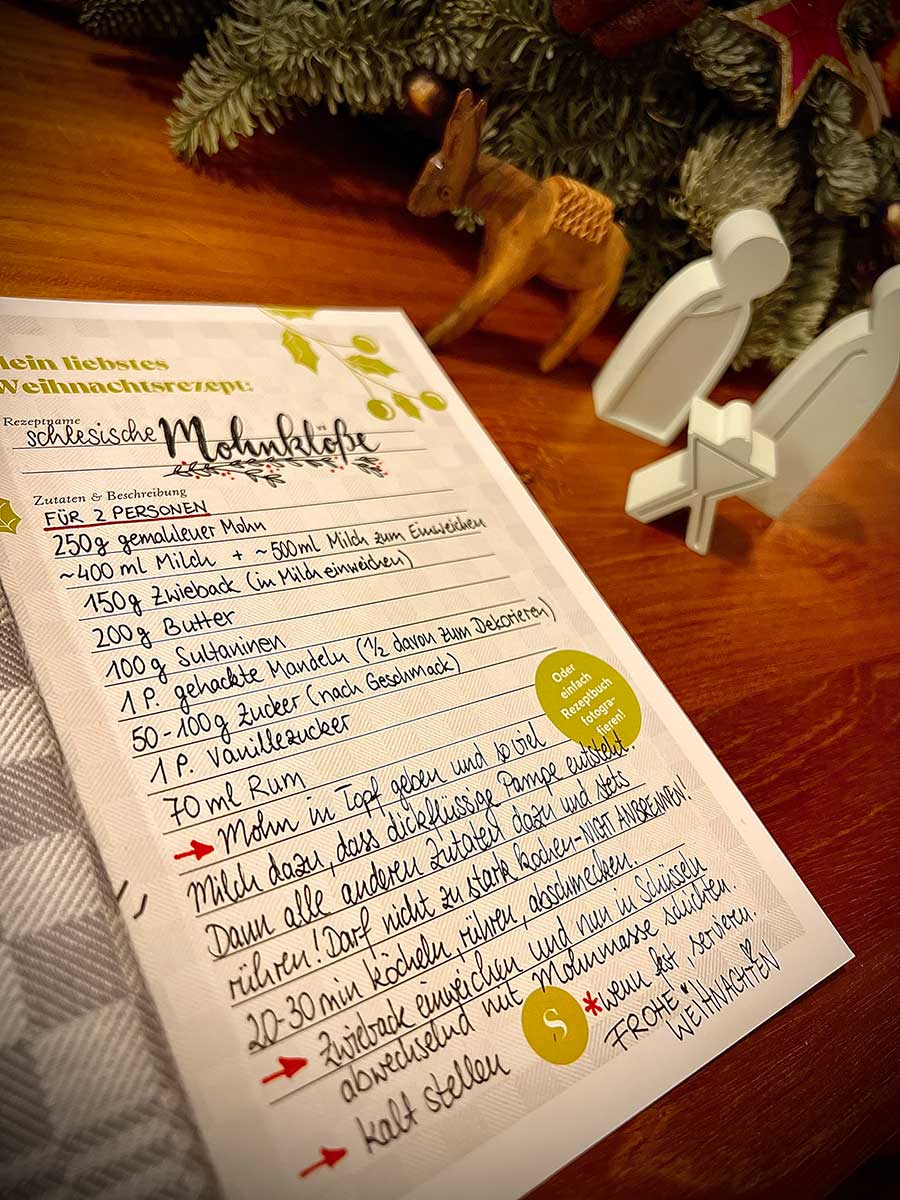 Mein liebstes
Weihnachtsrezept:
Rezeptname
schlesische Mohnklöße
Zutaten & Beschreibung
FÜR 2 PERSONEN
250g gemahlener Mohn
~400 ml Milch + ~500ml Milch zum Einweichen
150g Zwieback (in Milch einweichen)
200g Butter
100g Sultaninen
1 P. gehackte Mandeln (1/2 davon zum Dekorieren)
50-100g Zucker (nach Geschmack)
1 P. Vanillezucker
70 ml Rum
Oder
einfach
Rezeptbuch
fotogra-
fieren!
→ Mohn in Topf geben und so viel
Milch dazu, dass dickflüssige Pampe entsteht.
Dann alle anderen Zutaten dazu und stets
rühren! Darf nicht zu stark kochen - NICHT ANBRENNEN!
20-30min köcheln, rühren, abschmecken.
→ Zwieback einweichen und nun in Schüsseln
abwechselnd mit Mohnmasse schichten.
→ kalt stellen
S
*wenn fest, servieren.
FROHE
WEIHNACHTEN